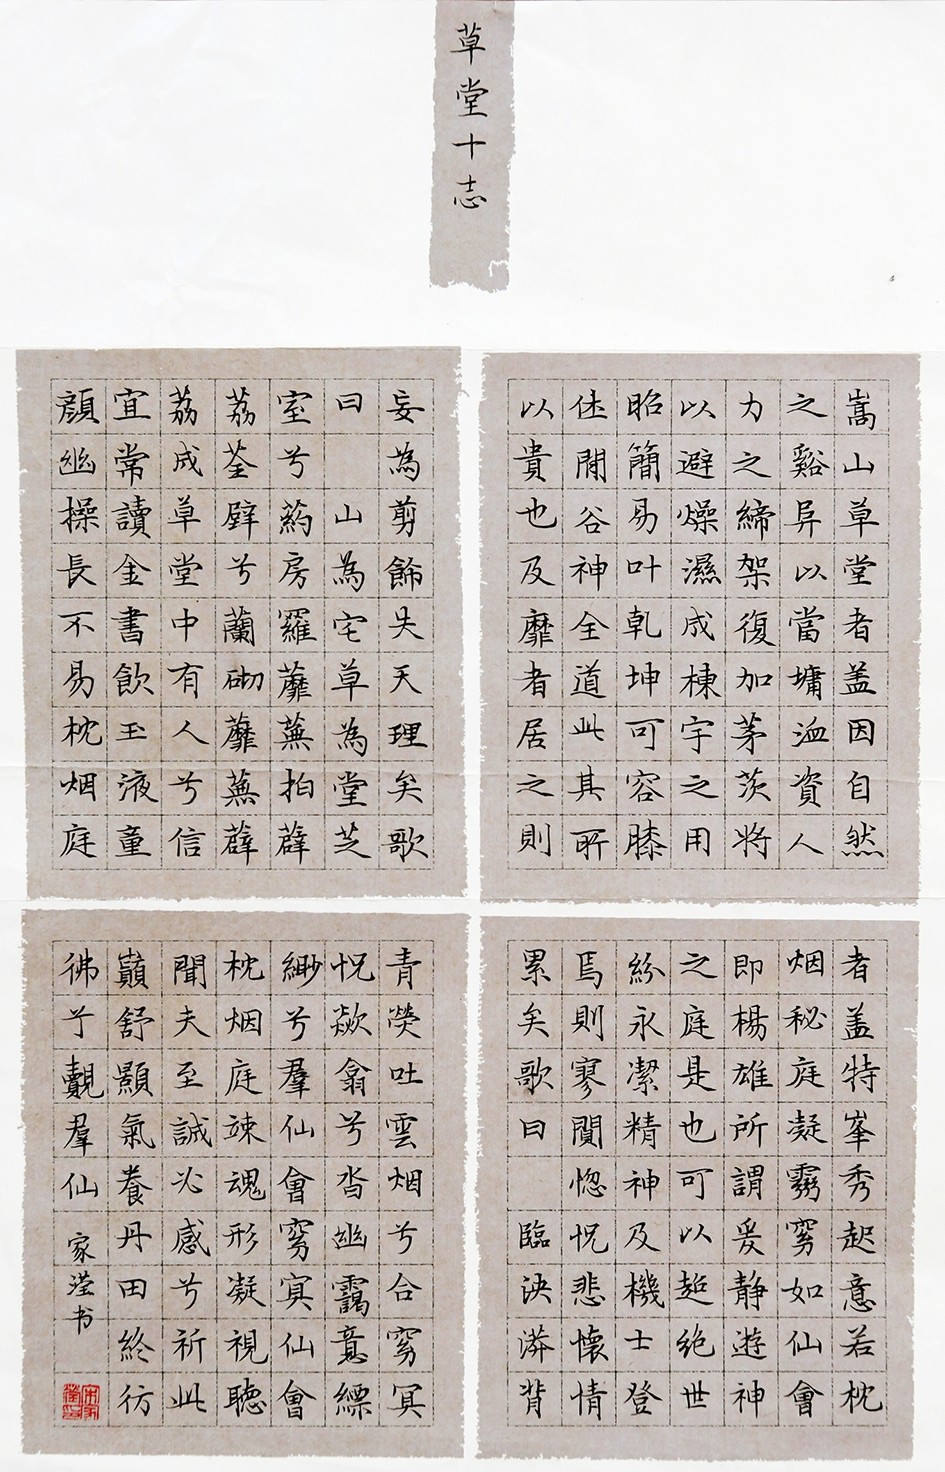 草堂十志
嵩山草堂者盖因自然
之谿阜以當墉洫資人
力之締架復加茅茨將
以避燥濕成棟宇之用
昭簡易叶乾坤可容膝
休閒谷神全道此其所
以貴也及靡者居之則
妄為剪飾失天理矣歌
曰 山為宅草為堂芝
室兮葯房羅蘼蕪拍薜
荔荃壁兮蘭砌蘼蕪薜
荔成草堂中有人兮信
宜常讀金書飲玉液童
顏幽操長不易枕烟庭
者盖特峯秀起意若枕
烟秘庭凝霧窅如仙會
即楊雄所謂爰静遊神
之庭是也可以超絕世
紛永潔精神及機士登
焉則寥闃惚怳悲懷情
累矣歌曰 臨泱漭背
青熒吐雲烟兮合窅冥
怳欻翕兮沓幽靄意縹
緲兮羣仙會窅冥仙會
枕烟庭竦魂形凝視聽
聞夫至誠必感兮祈此
巔舒顥氣養丹田終彷
彿兮覿羣仙 家滢书